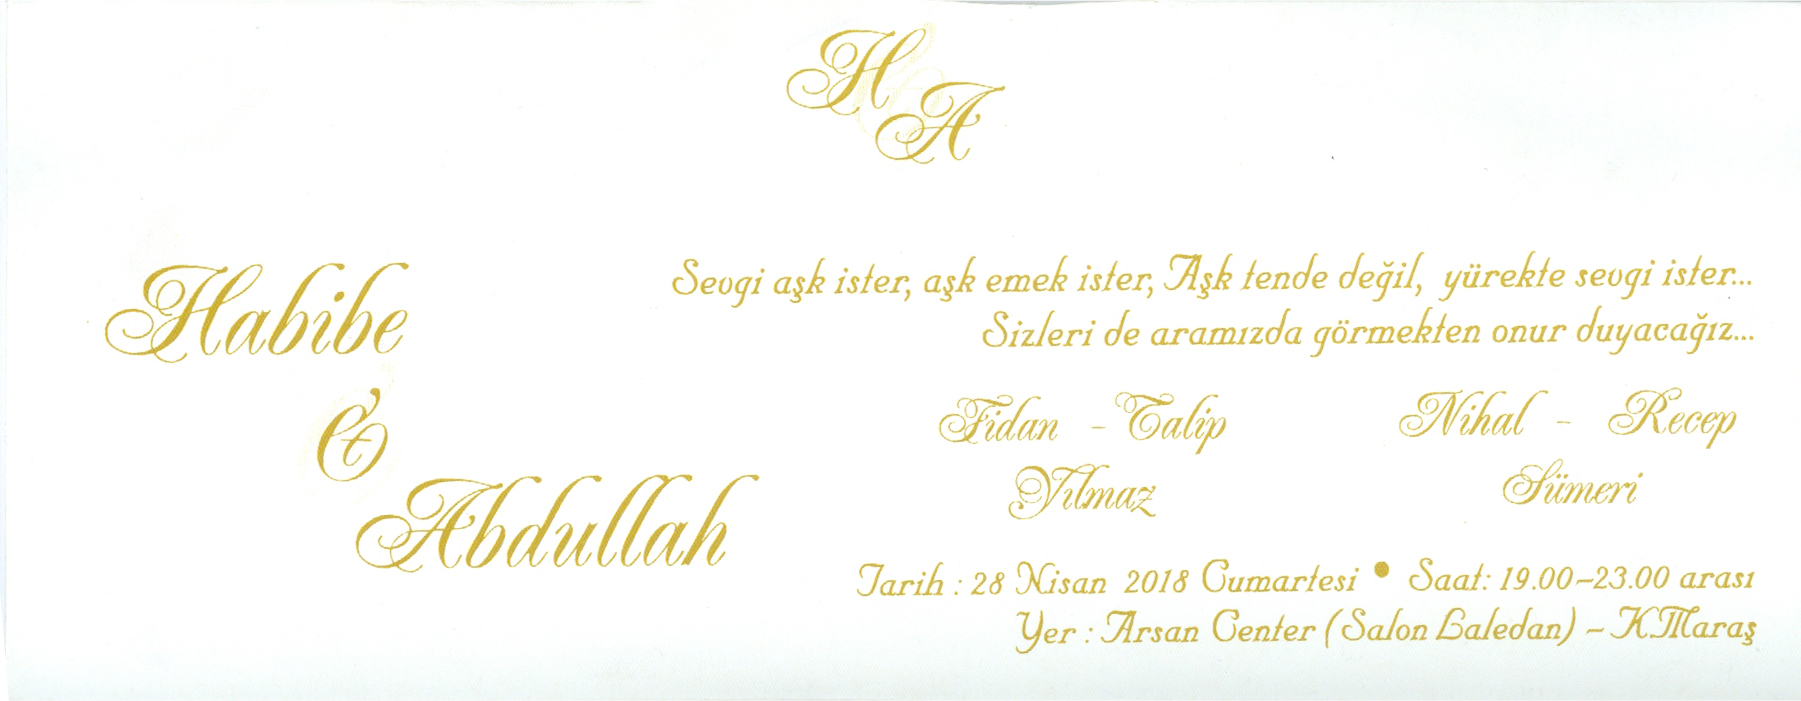 H A
Habibe
&
Abdullah
Sevgi aşk ister, aşk emek ister, Aşk tende değil, yürekte sevgi ister...
Sizleri de aramızda görmekten onur duyacağız...
Fidan - Talip Nihal - Recep
Yılmaz Sümeri
Tarih : 28 Nisan 2018 Cumartesi • Saat: 19.00-23.00 arası
Yer : Arsan Center (Salon Laledan) - K.Maraş